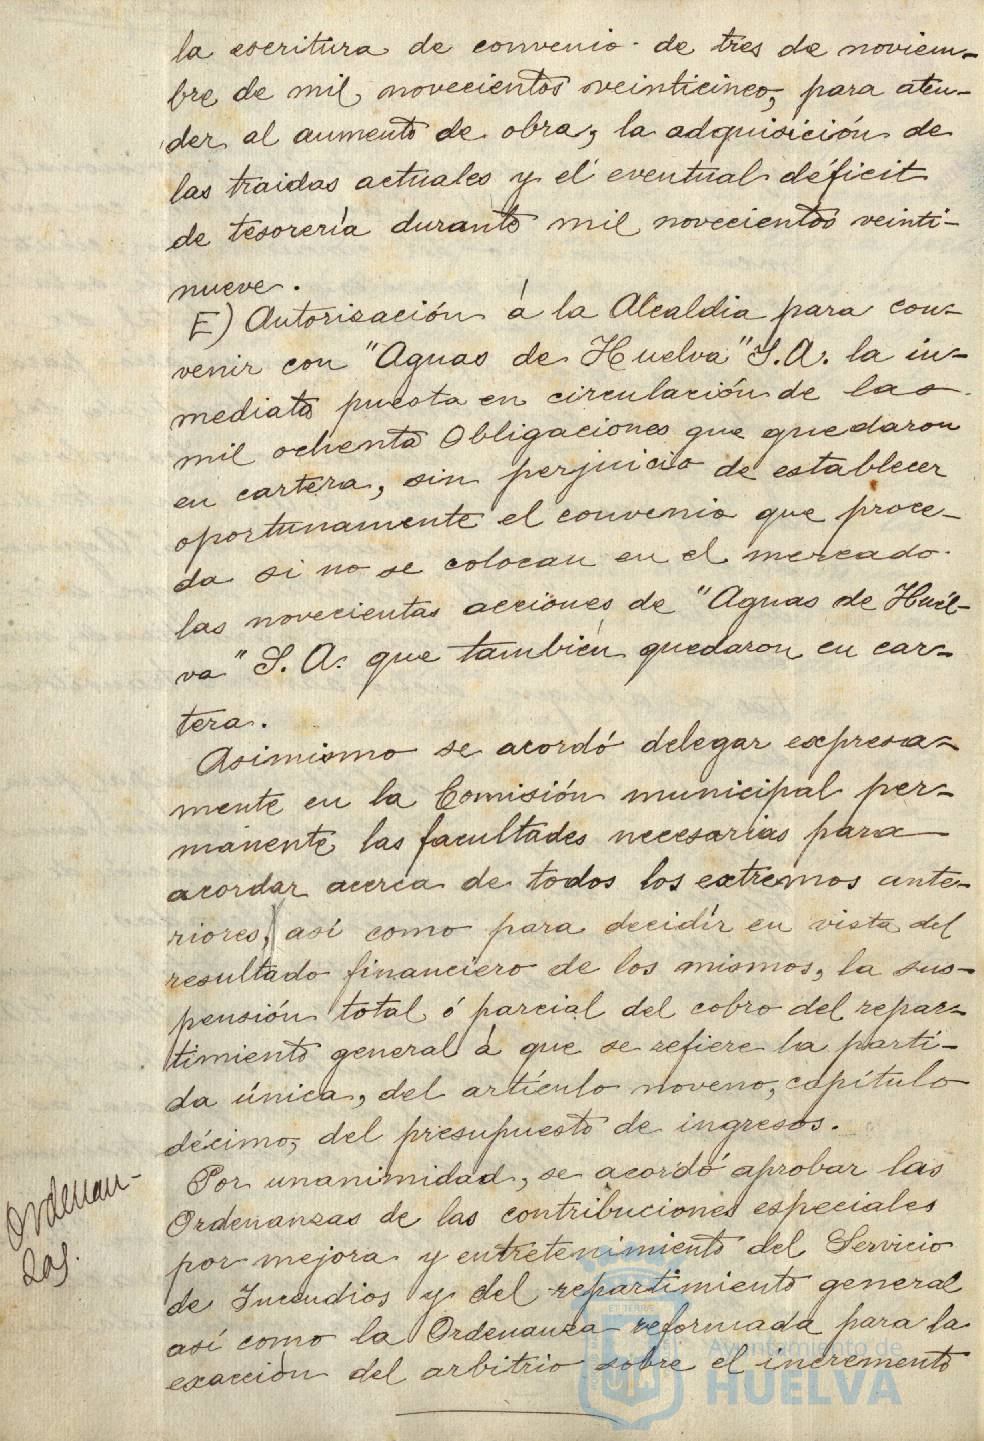 la escritura de convenio de tres de noviem-
bre de mil novecientos veinticinco, para aten-
der al aumento de obra, la adquisición de
las traidas actuales y el eventual déficit
de tesorería durante mil novecientos veinti-
nueve.
E) Autorisación á la Alcaldia para con-
venir con "Aguas de Huelva" S.A. la in-
mediata puesta en circulación de las
mil ochenta Obligaciones que quedaron
en cartera, sin perjuicio de establecer
oportunamente el convenio que proce-
da si no se colocan en el mercado
las novecientas acciones de "Aguas de Huel-
va" S. A. que también quedaron en car-
tera.
Asimismo se acordó delegar expresa-
mente en la Comisión municipal per-
manente las facultades necesarias para
acordar acerca de todos los extremos ante-
riores, así como para decidir en vista del
resultado financiero de los mismos, la sus-
pensión total ó parcial del cobro del repar-
timiento general á que se refiere la parti-
da única, del artículo noveno, capítulo
décimo, del presupuesto de ingresos.
Ordenan-
zas.
Por unanimidad, se acordó aprobar las
Ordenanzas de las contribuciones especiales
por mejora y entretenimiento del Servicio
de Incendios y del repartimiento general
así como la Ordenanza reformada para la
exacción del arbitrio sobre el incremento
Ayuntamiento de
HUELVA